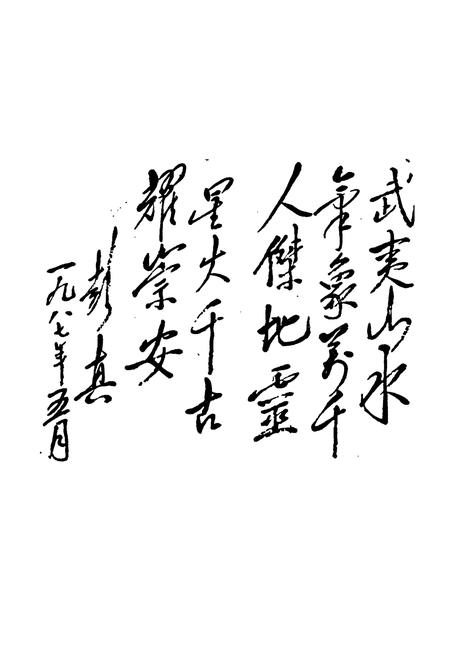 武夷山水
氣象万千
人傑地靈
星火千古
耀崇安
彭真
一九八七年五月